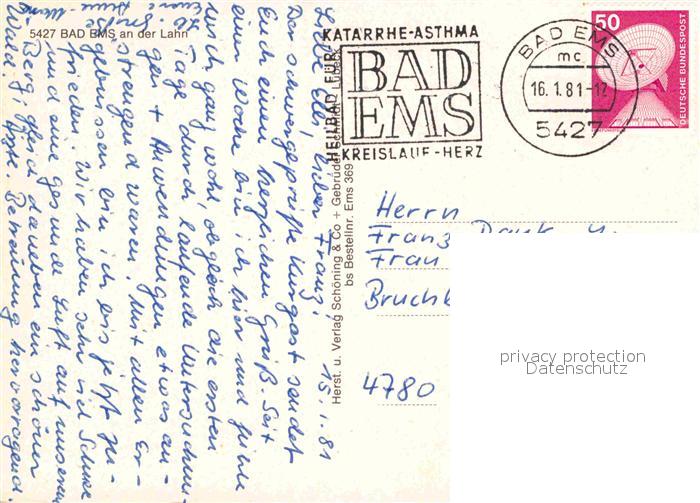 5427 BAD EMS an der Lahn
15.1.81
Liebe Elli, lieber Franz!
Der schwergeprüfte Kurgast sendet
Euch einen herzlichen Gruß. Seit
einer Woche bin ich hier und fühle
mich ganz wohl, obgleich die ersten
Tage durch laufende Untersuchun-
gen + Anwendungen etwas an-
strengend waren. Mit allen Er-
gebnissen bin ich bis jetzt zu-
frieden. Wir haben sehr viel Schnee
und eine gesunde Luft auf unserem
Berg, gleich daneben ein schöner
Wald. Ärztl. Betreuung hervorragend
Herzl. Grüße
Eure
HEILBAD FÜR
KATARRHE-ASTHMA
BAD
EMS
KREISLAUF-HERZ
BAD EMS
mc
16.1.81-12
5427
50
DEUTSCHE BUNDESPOST
Herst. u. Verlag Schöning & Co + Gebrüder Schmidt, Lübeck
bs Bestellnr. Ems 369
Herrn
Franz
Frau
4780
privacy protection
Datenschutz